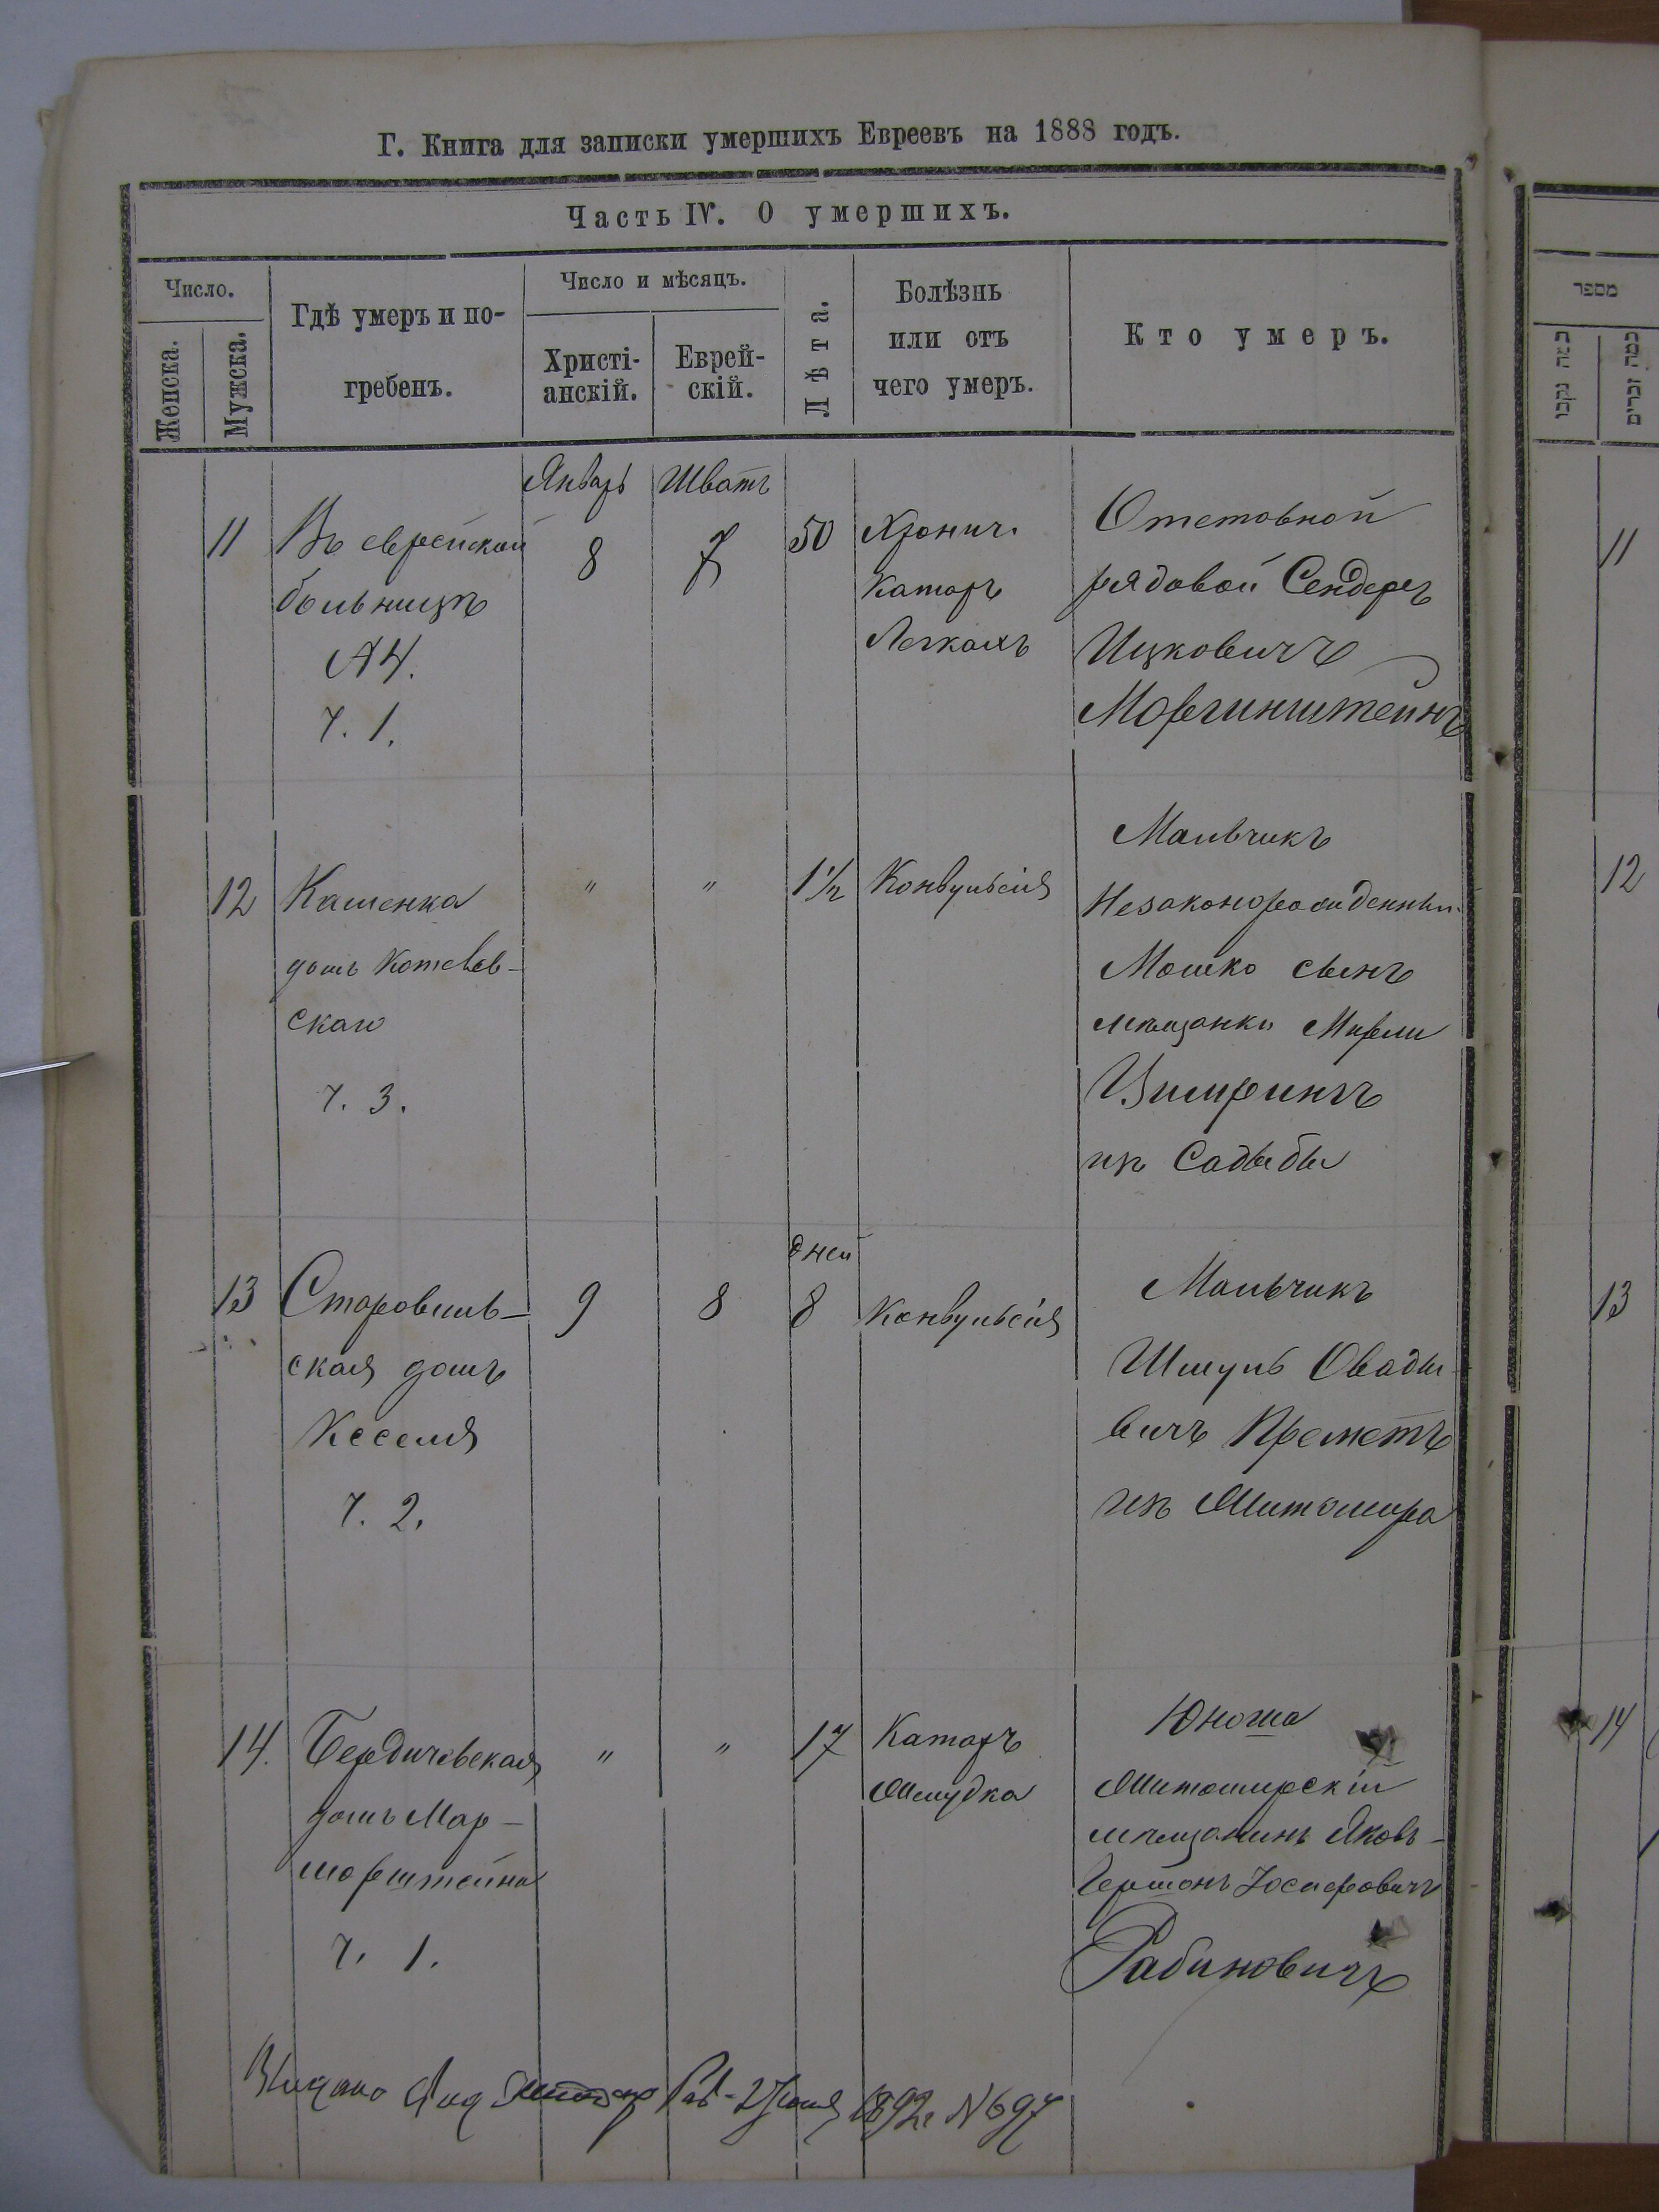 Г. Книга для записки умершихъ Евреевъ на 1888 годъ.
Часть IV. О умершихъ.
Число.
Женска.
Мужска.
Гдѣ умеръ и по-
гребенъ.
Число и мѣсяцъ.
Христі-
анскій.
Еврей-
скій.
Лѣта.
Болѣзнь
или отъ
чего умеръ.
Кто умеръ.
Январь
Шватъ
11
Въ еврейской
больницѣ
Ч. 1.
8
7
50
Хронич.
Катаръ
Легкихъ
Отставной
рядовой Сендеръ
Ицковичъ
Моргинштейнъ
12
Кашенка
домъ Котевев-
скаго
ч. 3.
"
"
1 1/2
Конвульсія
Мальчикъ
Незаконорожденный
Мошко сынъ
мѣщанки Мирли
Цимрингъ
изъ Садыбы
13
Старовиль-
ская домъ
Кесселя
ч. 2.
9
8
дней
8
Конвульсія
Мальчикъ
Шмуль Овадьи-
вичъ Креметъ
изъ Житомира
14.
Бердичевская
домъ Мар-
морштейна
ч. 1.
"
"
17
Катаръ
Желудка
Юноша
Житомирскій
мѣщанинъ Яковъ-
Гершонъ Іосифовичъ
Рабиновичъ
Выдано 1892 г. № 697
מספר
כמה נקבו
כמה זכרים
11
12
13
14